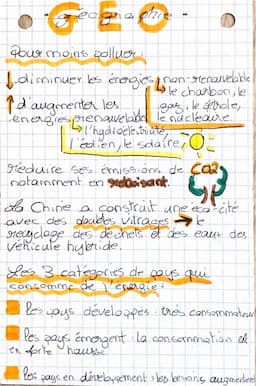 GEO
- géographie -
Pour moins polluer:
↓ diminuer les énergies non-renouvelable
↳ le charbon, le
gaz, le pétrole,
le nucléaire.
↑ d'augmenter les
énergies renouvelable
↳ l'hydroélectricité,
l'éolien, le solaire,
réduire ses émissions de CO2
notamment en reboisant.
La Chine a construit une éco-cité
avec des doubles vitrages → le
recyclage des déchets et des eaux des
véhicule hybride.
Les 3 catégories de pays qui
consomme de l'énergie:
les pays développés : très consommateur
les pays émergent : la consommation est
en forte hausse
les pays en développement : les besoins augmentent